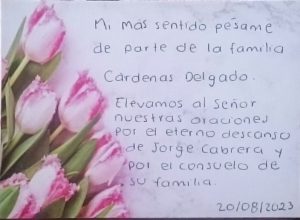 Mi mas sentido pésame
de parte de la familia
Cárdenas Delgado.
Elevamos al Señor
nuestras oraciones
por el eterno descanso
de Jorge Cabrera y
por el consuelo de
su familia.
20/08/2023